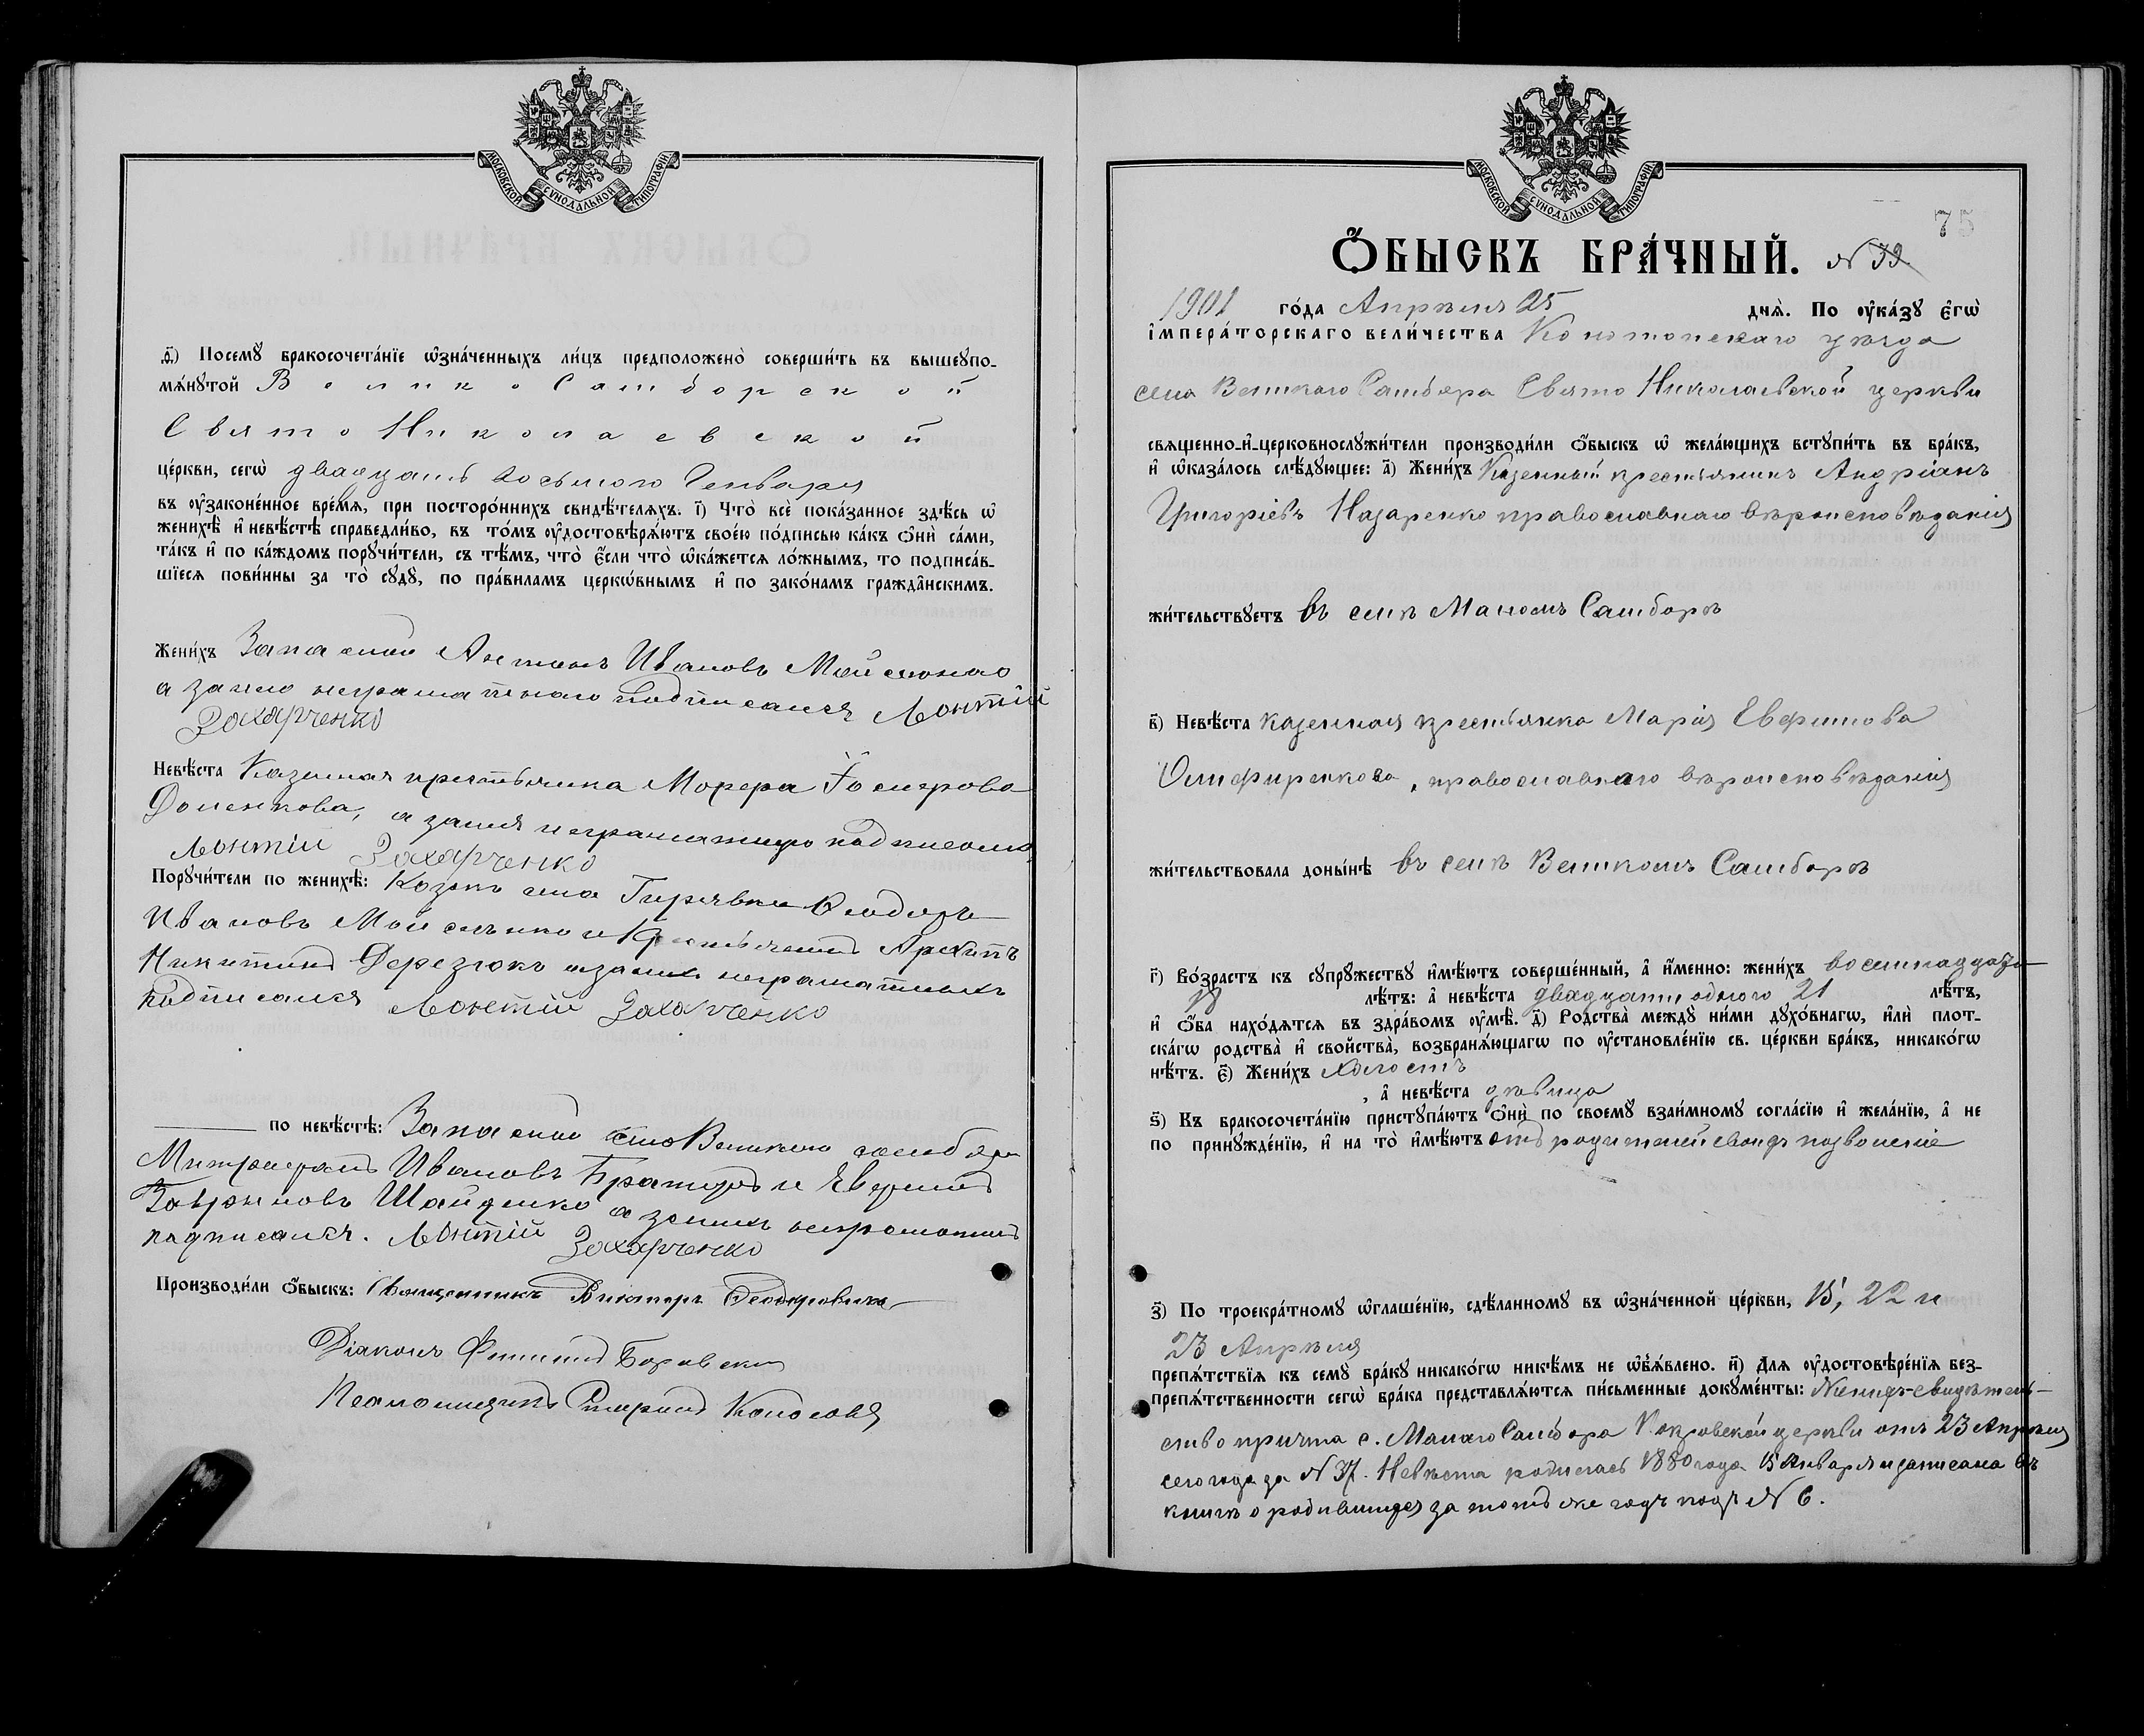 МОСКОВСКОЙ СѴНОДАЛЬНОЙ ТИПОГРАФІИ
ѳ҃) Посемꙋ бракосочета́нїе ѡ҆зна́ченныхъ ли́цъ предположено̀ соверши́ть въ вышеꙋпо-
мѧ́нꙋтой Велико Самборской
Свято Николаевской
це́ркви, сегѡ̀ двадцать восьмого Генваря
въ ᲂу҆законе́нное вре́мѧ, при посторо́ннихъ свидѣ́телѧхъ. і҃) Что̀ всѐ пока́занное здѣ́сь ѡ҆
женихѣ̀ и҆ невѣ́стѣ справедли́во, въ то́мъ ᲂу҆достовѣрѧ́ютъ свое́ю по́дписью ка́къ ѻ҆нѝ са́ми,
та́къ и҆ по ка́ждомъ порꙋчи́тели, съ тѣ́мъ, что̀ є҆́сли что̀ ѡ҆ка́жетсѧ ло́жнымъ, то подписа́в-
шїесѧ пови́нны за то̀ сꙋдꙋ̀, по пра́виламъ церко́внымъ и҆ по зако́намъ гражда́нскимъ.
Жени́хъ Запасной Антонъ Ивановъ Мойсенко
а занего неграматнаго подписался Леонтій
Захарченко
Невѣ́ста Казенная крестьянка
Доценкова, а занея неграматную подписался
Леонтій Захарченко
Порꙋчи́тели по женихѣ̀: Козакъ села Гирявки Ѳеодоръ
Ивановъ Мойсенко и Крестьянинъ Архипъ
Никитинъ Дерезюкъ изаних неграматных
подписался Леонтій Захарченко
по невѣ́стѣ: Запасной села Великого самбора
Митрофанъ Ивановъ и Евфимъ
Шайденко а заних неграматныхъ
подписался. Леонтій Захарченко
Производи́ли ѻ҆́быскъ: Священникъ Викторъ Ѳеодоровичъ
Діаконъ Филиппъ Боровский
Псаломщикъ
МОСКОВСКОЙ СѴНОДАЛЬНОЙ ТИПОГРАФІИ
75
Ѻ҆́БЫСКЪ БРА́ЧНЫЙ. N 39
1901 го́да Апрѣля 25 днѧ̀. По ᲂу҆ка́зꙋ є҆гѡ̀
і҆мпера́торскаго вели́чества Конотопскаго уѣзда
села Великого Самбора Свято Николаевской церкви
свѧщенно-и҆-церковнослꙋжи́тели производи́ли ѻ҆́быскъ ѡ҆ жела́ющихъ встꙋпи́ть въ бра́къ,
и҆ ѡ҆каза́лось слѣ́дꙋющее: а҃) Жени́хъ Казенный крестьянинъ Андріанъ
Григоріевъ Назаренко православнаго вѣроисповѣданія
жи́тельствꙋетъ въ селѣ Маломъ Самборѣ
в҃) Невѣ́ста казенная крестьянка Марія Евфимова
Олиференкова, православнаго вѣроисповѣданія
жи́тельствовала доны́нѣ въ селѣ Великомъ Самборѣ
г҃) Во́зрастъ къ сꙋпрꙋ́жествꙋ и҆мѣ́ютъ соверше́нный, а҆ и҆́менно: жени́хъ восемнадцати
18 лѣ́тъ: а҆ невѣ́ста двадцати одного 21 лѣ́тъ,
и҆ ѻ҆́ба нахо́дѧтсѧ въ здра́вомъ ᲂу҆мѣ̀. д҃) Родства̀ междꙋ ни́ми дꙋхо́внагѡ, и҆лѝ плот-
ска́гѡ родства̀ и҆ сво́йства̀, возбранѧ́ющагѡ по ᲂу҆становле́нїю св. це́ркви бра́къ, никако́гѡ
нѣ́тъ. є҃) Жени́хъ холостъ
, а҆ невѣ́ста дѣвица
ѕ҃) Къ бракосочета́нїю пристꙋпа́ютъ ѻ҆нѝ по своемꙋ̀ взаи́мномꙋ согла́сїю и҆ жела́нїю, а҆ не
по принꙋжде́нїю, и҆ на то̀ и҆мѣ́ютъ отъ родителей своихъ позволеніе
з҃) По троекра́тномꙋ ѡ҆глаше́нїю, сдѣ́ланномꙋ въ ѡ҆зна́ченной це́ркви, 15, 22 и
23 Апрѣля
препѧ́тствїѧ къ семꙋ̀ бра́кꙋ никако́гѡ никѣ́мъ не ѡ҆б̾ѧ́влено. и҃) Длѧ ᲂу҆достовѣре́нїѧ без-
препѧ́тственности сегѡ̀ бра́ка представлѧ́ютсѧ пи́сьменные докꙋме́нты: Женихъ-свидѣтель-
ство причта с. Малаго Самбора Покровской церкви отъ 23 Апрѣля
сего года за N 37. Невѣста родилась 1880 года 15 Января и записана въ
книгѣ о родившихся за тотъ же годъ подъ N 6.